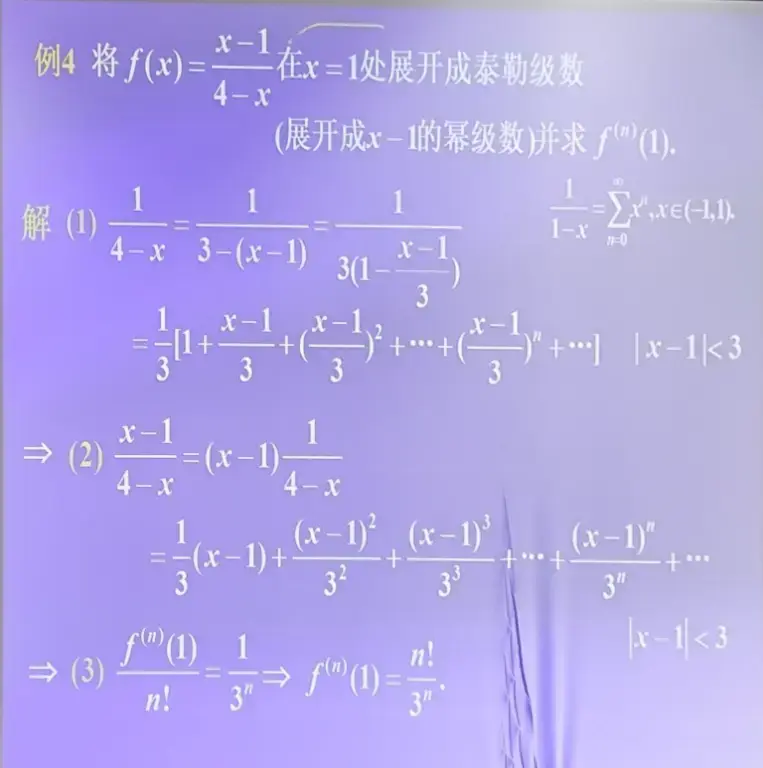 例4 将 f(x) = \frac{x-1}{4-x} 在x = 1处展开成泰勒级数
(展开成x-1的幂级数)并求 f^{(n)}(1).
解 (1) \frac{1}{4-x} = \frac{1}{3-(x-1)} = \frac{1}{3(1-\frac{x-1}{3})}
\frac{1}{1-x} = \sum_{n=0}^{\infty} x^n, x∈(-1,1).
= \frac{1}{3}[1+\frac{x-1}{3}+(\frac{x-1}{3})^2+⋯+(\frac{x-1}{3})^n+⋯] |x-1|<3
⇒ (2) \frac{x-1}{4-x} = (x-1)\frac{1}{4-x}
= \frac{1}{3}(x-1)+\frac{(x-1)^2}{3^2}+\frac{(x-1)^3}{3^3}+⋯+\frac{(x-1)^n}{3^n}+⋯
|x-1|<3
⇒ (3) \frac{f^{(n)}(1)}{n!} = \frac{1}{3^n} ⇒ f^{(n)}(1) = \frac{n!}{3^n}.